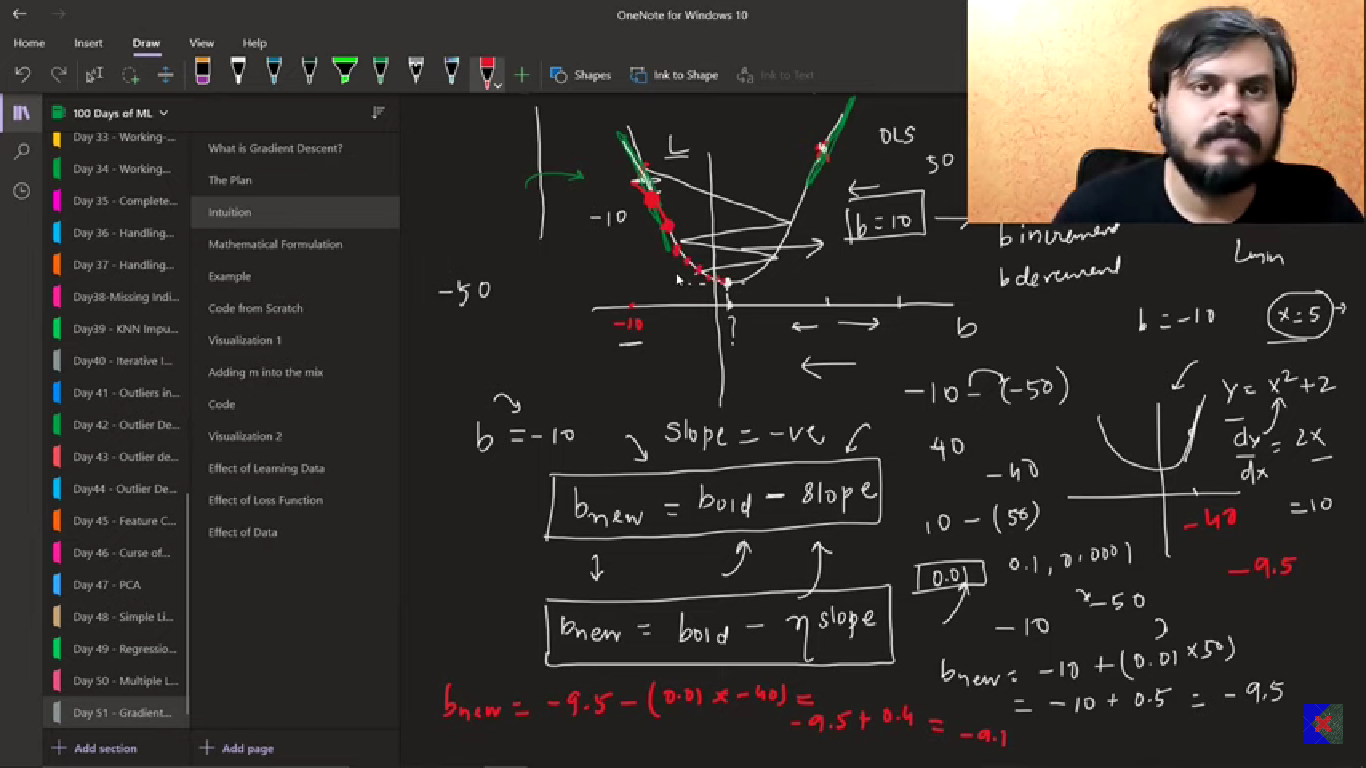 OneNote for Windows 10
Home Insert Draw View Help
Shapes Ink to Shape Ink to Text
100 Days of ML
Day 33 - Working-...
Day 34 - Working...
Day 35 - Complete...
Day 36 - Handling...
Day 37 - Handling...
Day38-Missing Indi...
Day39 - KNN Impu...
Day40 - Iterative I...
Day 41 - Outliers in...
Day 42 - Outlier De...
Day 43 - Outlier de...
Day44 - Outlier De...
Day 45 - Feature C...
Day 46 - Curse of...
Day 47 - PCA
Day 48 - Simple Li...
Day 49 - Regressio...
Day 50 - Multiple L...
Day 51 - Gradient...
Add section
What is Gradient Descent?
The Plan
Intuition
Mathematical Formulation
Example
Code from Scratch
Visualization 1
Adding m into the mix
Code
Visualization 2
Effect of Learning Data
Effect of Loss Function
Effect of Data
Add page
L
OLS
50
-10
b = 10
b increment
b decrement
Lmin
-50
-10
?
b
b = -10
x = 5
-10 - (-50)
y = x² + 2
b = -10
slope = -ve
40
dy/dx = 2x
-40
= 10
bnew = bold - slope
10 - (50)
-40
0.01
0.1, 0.0001
-9.5
-50
bnew = bold - η slope
-10
bnew = -10 + (0.01 × 50)
= -10 + 0.5 = -9.5
bnew = -9.5 - (0.01 × -40) =
-9.5 + 0.4 = -9.1